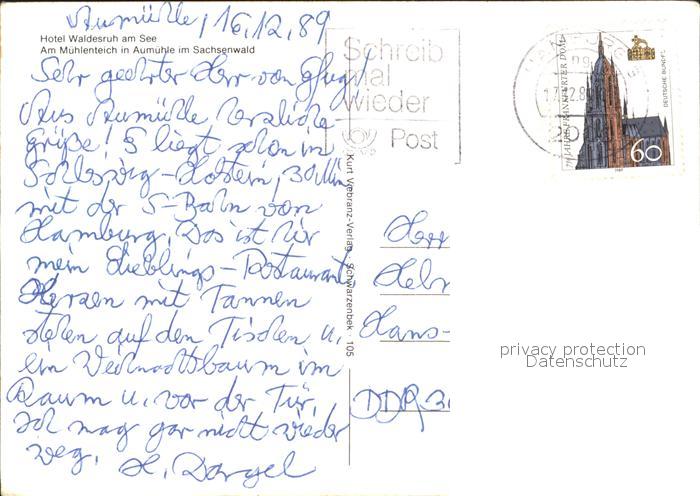 Aumühle, 16.12.89
Hotel Waldesruh am See
Am Mühlenteich in Aumühle im Sachsenwald
Sehr geehrter Herr von
Aus Aumühle herzliche
Grüße! Es liegt schon in
Schleswig-Holstein, 30 Min
mit der S-Bahn von
Hamburg. Das ist hier
mein Lieblings-Restaurant
Kerzen mit Tannen
stehen auf den Tischen u.
ein Weihnachtsbaum im
Raum u. vor der Tür.
Ich mag gar nicht wieder
weg. H. Dargel
Schreib
mal
wieder
Post
Kurt Viebranz-Verlag, Schwarzenbek · 105
JAHRE FRANKFURTER DOM
DEUTSCHE BUNDESPOST
60
1989
Herr
Hans-
DDR
privacy protection
Datenschutz